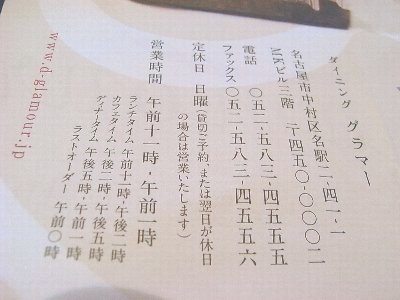 ダイニング グラマー
名古屋市中村区名駅二-四-一
MKビル三階 〒四五〇-〇〇〇二
電話 〇五二-五八三-四五五五
ファックス 〇五二-五八三-四五五六
定休日 日曜(貸切ご予約、または翌日が休日
の場合は営業いたします)
営業時間 午前十一時-午前一時
ランチタイム 午前十一時-午後二時
カフェタイム 午後二時-午後五時
ディナータイム 午後五時-午前一時
ラストオーダー 午前〇時
www.d-glamour.jp